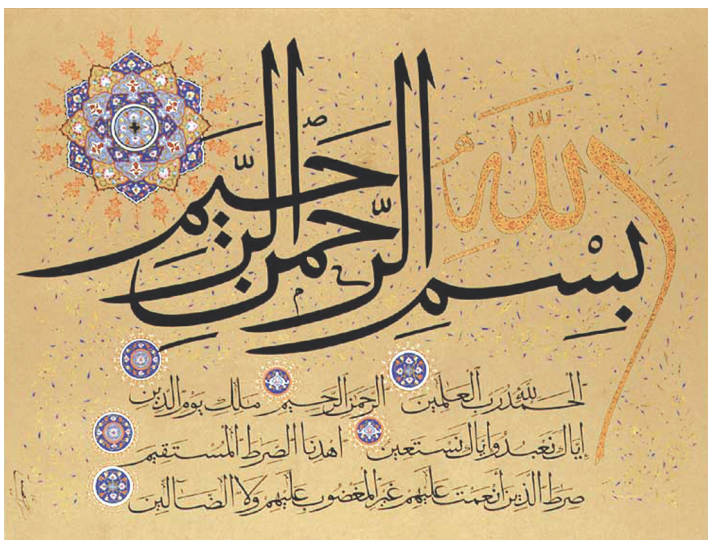 بِسْمِ اللّٰهِ الرَّحْمٰنِ الرَّحِيمِ
الحمد لله رب العلمين الرحمن الرحيم ملك يوم الدين
إياك نعبد وإياك نستعين اهدنا الصرط المستقيم
صرط الذين أنعمت عليهم غير المغضوب عليهم ولا الضالين